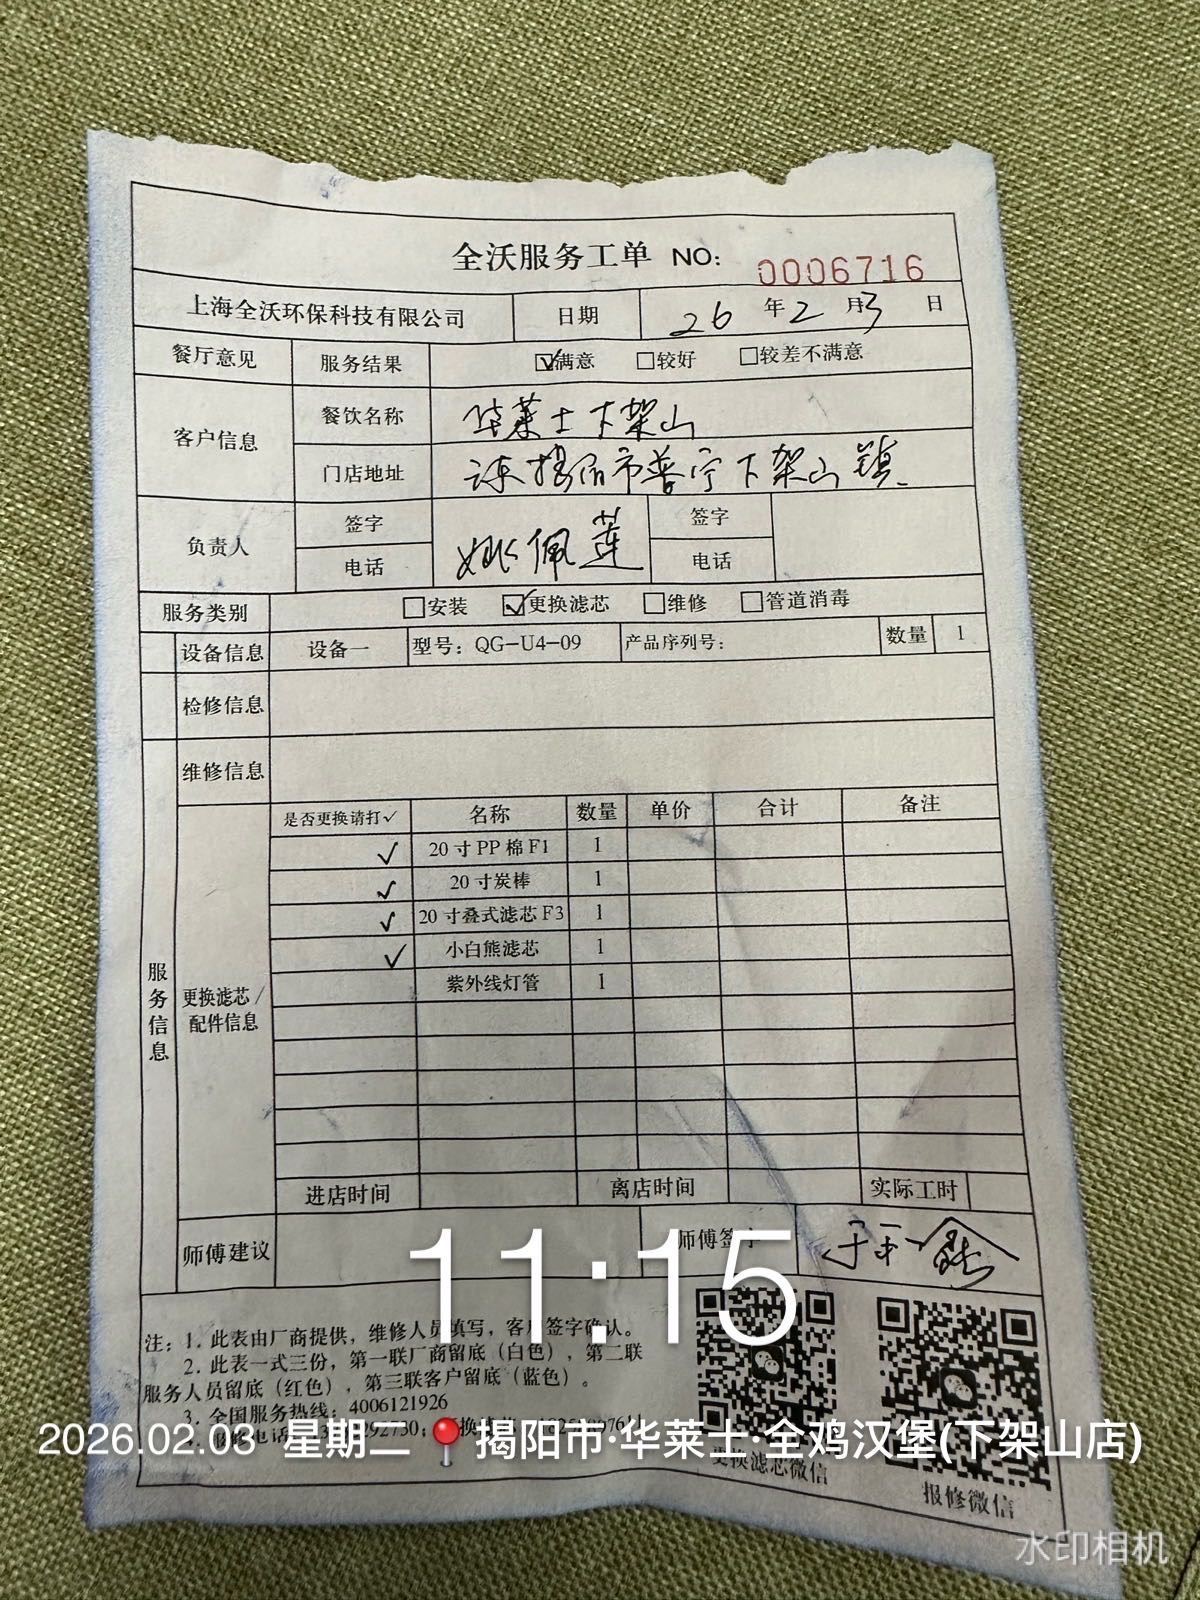 全沃服务工单 NO: 0006716
上海全沃环保科技有限公司 日期 26 年 2 月 3 日
餐厅意见 服务结果 ☑满意 □较好 □较差不满意
客户信息 餐饮名称 华莱士下架山
门店地址 揭阳市普宁下架山镇
负责人 签字 姚佩莲 签字
电话 电话
服务类别 □安装 ☑更换滤芯 □维修 □管道消毒
设备信息 设备一 型号: QG-U4-09 产品序列号: 数量 1
检修信息
维修信息
服务信息
更换滤芯/
配件信息
是否更换请打✓ 名称 数量 单价 合计 备注
✓ 20寸PP棉F1 1
✓ 20寸炭棒 1
✓ 20寸叠式滤芯F3 1
✓ 小白熊滤芯 1
紫外线灯管 1
进店时间 离店时间 实际工时
师傅建议 师傅签字
11:15
注: 1. 此表由厂商提供, 维修人员填写, 客户签字确认。
2. 此表一式三份, 第一联厂商留底 (白色), 第二联
服务人员留底 (红色), 第三联客户留底 (蓝色)。
3. 全国服务热线: 4006121926
更换滤芯微信 报修微信
2026.02.03 星期二 揭阳市·华莱士·全鸡汉堡(下架山店)
水印相机